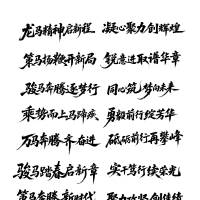 龙马精神启新程 凝心聚力创辉煌
策马扬鞭开新局 锐意进取谱华章
骏马奔腾逐梦行 同心筑梦向未来
乘势而上马蹄疾 勇毅前行绽芳华
万马奔腾齐奋进 砥砺前行再攀峰
骏马踏春启新章 实干笃行续荣光
策马奔腾新时代 聚力攻坚创佳绩